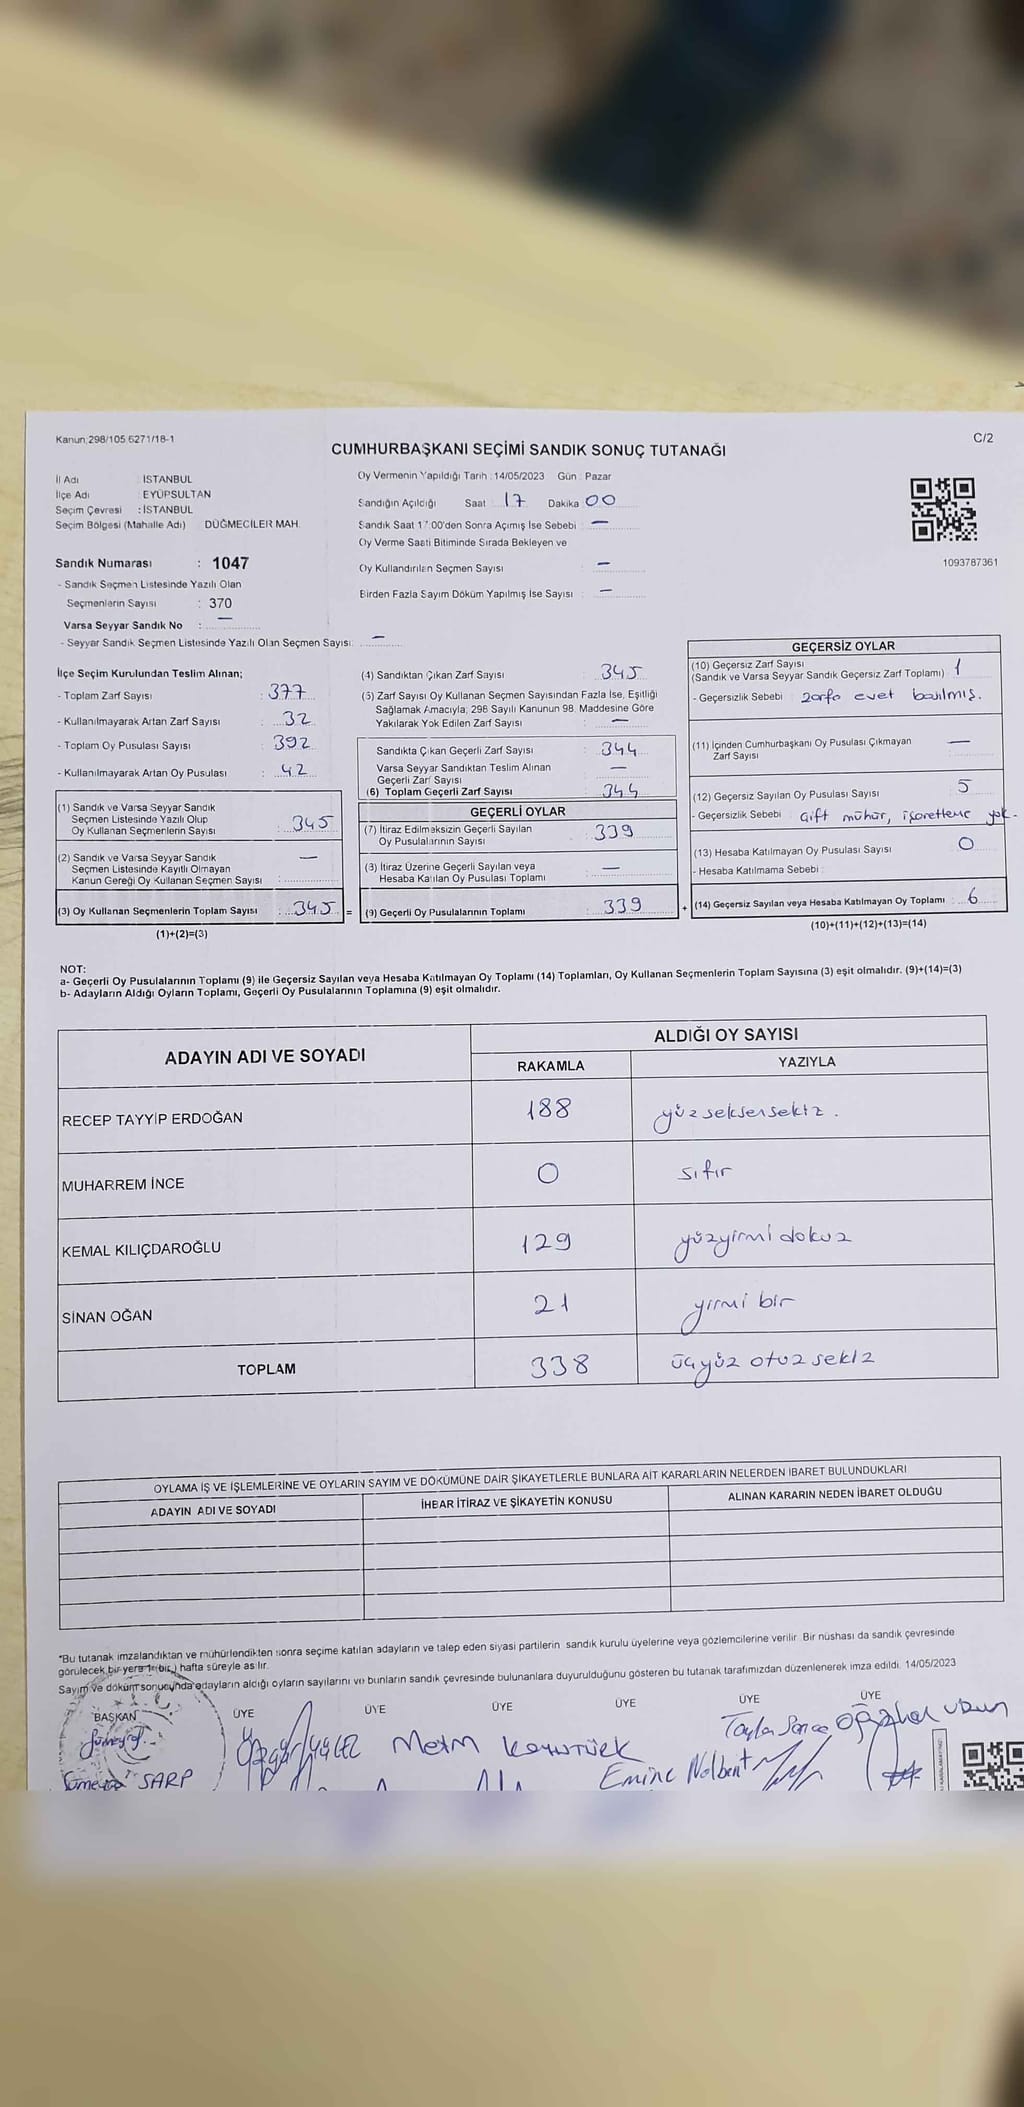 Kanun;298/105 6271/18-1
C/2
CUMHURBAŞKANI SEÇİMİ SANDIK SONUÇ TUTANAĞI
İl Adı İSTANBUL
İlçe Adı EYÜPSULTAN
Seçim Çevresi : İSTANBUL
Seçim Bölgesi (Mahalle Adı) DÜĞMECİLER MAH.
Sandık Numarası : 1047
- Sandık Seçmen Listesinde Yazılı Olan
Seçmenlerin Sayısı : 370
Varsa Seyyar Sandık No : —
- Seyyar Sandık Seçmen Listesinde Yazılı Olan Seçmen Sayısı: —
Oy Vermenin Yapıldığı Tarih : 14/05/2023 Gün : Pazar
Sandığın Açıldığı Saat 17 Dakika 00
Sandık Saat 17:00'den Sonra Açımış İse Sebebi : —
Oy Verme Saati Bitiminde Sırada Bekleyen ve
Oy Kullandırılan Seçmen Sayısı : —
Birden Fazla Sayım Döküm Yapılmış İse Sayısı : —
1093787361
İlçe Seçim Kurulundan Teslim Alınan;
- Toplam Zarf Sayısı : 377
- Kullanılmayarak Artan Zarf Sayısı : 32
- Toplam Oy Pusulası Sayısı : 392
- Kullanılmayarak Artan Oy Pusulası : 42
(1) Sandık ve Varsa Seyyar Sandık
Seçmen Listesinde Yazılı Olup
Oy Kullanan Seçmenlerin Sayısı : 345
(2) Sandık ve Varsa Seyyar Sandık
Seçmen Listesinde Kayıtlı Olmayan
Kanun Gereği Oy Kullanan Seçmen Sayısı : —
(3) Oy Kullanan Seçmenlerin Toplam Sayısı : 345 =
(1)+(2)=(3)
(4) Sandıktan Çıkan Zarf Sayısı : 345
(5) Zarf Sayısı Oy Kullanan Seçmen Sayısından Fazla İse, Eşitliği
Sağlamak Amacıyla; 298 Sayılı Kanunun 98. Maddesine Göre
Yakılarak Yok Edilen Zarf Sayısı : —
Sandıkta Çıkan Geçerli Zarf Sayısı : 344
Varsa Seyyar Sandıktan Teslim Alınan
Geçerli Zarf Sayısı : —
(6) Toplam Geçerli Zarf Sayısı : 344
GEÇERLİ OYLAR
(7) İtiraz Edilmeksizin Geçerli Sayılan
Oy Pusulalarının Sayısı : 339
(8) İtiraz Üzerine Geçerli Sayılan veya
Hesaba Katılan Oy Pusulası Toplamı : —
(9) Geçerli Oy Pusulalarının Toplamı : 339 +
GEÇERSİZ OYLAR
(10) Geçersiz Zarf Sayısı
(Sandık ve Varsa Seyyar Sandık Geçersiz Zarf Toplamı) : 1
- Geçersizlik Sebebi : zarfa evet basılmış.
(11) İçinden Cumhurbaşkanı Oy Pusulası Çıkmayan
Zarf Sayısı —
(12) Geçersiz Sayılan Oy Pusulası Sayısı 5
- Geçersizlik Sebebi : Çift mühür, işaretleme yok.
(13) Hesaba Katılmayan Oy Pusulası Sayısı 0
- Hesaba Katılmama Sebebi :
(14) Geçersiz Sayılan veya Hesaba Katılmayan Oy Toplamı : 6
(10)+(11)+(12)+(13)=(14)
NOT:
a- Geçerli Oy Pusulalarının Toplamı (9) ile Geçersiz Sayılan veya Hesaba Katılmayan Oy Toplamı (14) Toplamları, Oy Kullanan Seçmenlerin Toplam Sayısına (3) eşit olmalıdır. (9)+(14)=(3)
b- Adayların Aldığı Oyların Toplamı, Geçerli Oy Pusulalarının Toplamına (9) eşit olmalıdır.
ADAYIN ADI VE SOYADI ALDIĞI OY SAYISI
RAKAMLA YAZIYLA
RECEP TAYYİP ERDOĞAN 188 yüzseksensekiz.
MUHARREM İNCE 0 sıfır
KEMAL KILIÇDAROĞLU 129 yüzyirmi dokuz
SİNAN OĞAN 21 yirmi bir
TOPLAM 338 üçyüz otuz sekiz
OYLAMA İŞ VE İŞLEMLERİNE VE OYLARIN SAYIM VE DÖKÜMÜNE DAİR ŞİKAYETLERLE BUNLARA AİT KARARLARIN NELERDEN İBARET BULUNDUKLARI
ADAYIN ADI VE SOYADI İHBAR İTİRAZ VE ŞİKAYETİN KONUSU ALINAN KARARIN NEDEN İBARET OLDUĞU
*Bu tutanak imzalandıktan ve mühürlendikten sonra seçime katılan adayların ve talep eden siyasi partilerin sandık kurulu üyelerine veya gözlemcilerine verilir. Bir nüshası da sandık çevresinde
görülecek bir yere 1(bir) hafta süreyle asılır.
Sayım ve döküm sonucunda adayların aldığı oyların sayılarını ve bunların sandık çevresinde bulunanlara duyurulduğunu gösteren bu tutanak tarafımızdan düzenlenerek imza edildi. 14/05/2023
BAŞKAN ÜYE ÜYE ÜYE ÜYE ÜYE ÜYE
SARP
Emine